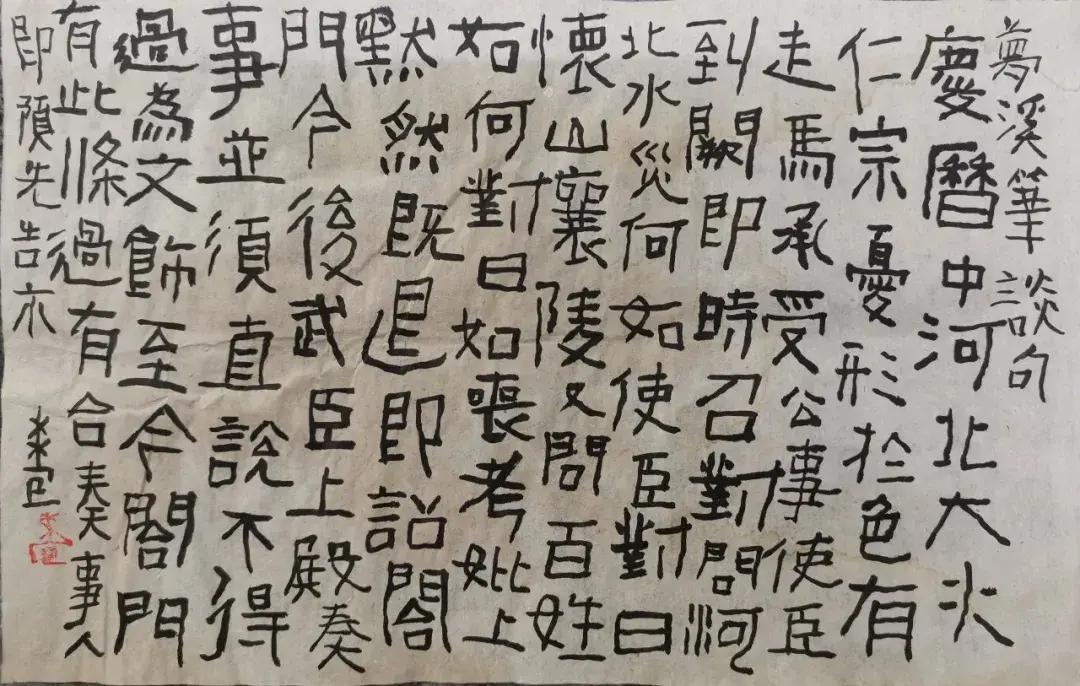 夢溪筆談句
慶曆中河北大水
仁宗憂形於色有
走馬承受公事使臣
到闕即時召對問河
北水災何如使臣對曰
懷山襄陵又問百姓
如何對曰如喪考妣上
默然既退即詔閤
門今後武臣上殿奏
事並須直說不得
過為文飾至今閤門
有此條過有合奏事人
即預先告示